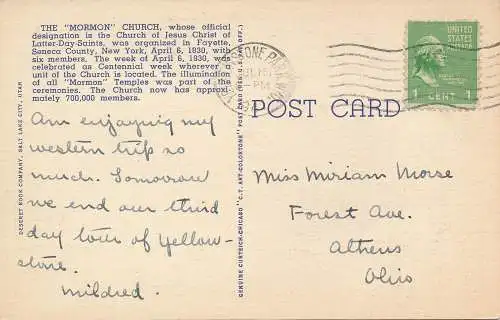 THE "MORMON" CHURCH, whose official
designation is the Church of Jesus Christ of
Latter-Day-Saints, was organized in Fayette,
Seneca County, New York, April 6, 1830, with
six members. The week of April 6, 1930, was
celebrated as Centennial week wherever a
unit of the Church is located. The illumination
of all "Mormon" Temples was part of the
ceremonies. The Church now has approxi-
mately 700,000 members.
Am enjoying my
western trip so
much. Tomorrow
we end our third
day tour of Yellow-
stone.
Mildred.
DESERET BOOK COMPANY, SALT LAKE CITY, UTAH
GENUINE CURTEICH-CHICAGO "C.T. ART-COLORTONE" POST CARD (REG. U.S. PAT. OFF.)
PM
POST CARD
UNITED
STATES
POSTAGE
1 CENT 1
Miss Miriam Morse
Forest Ave.
Athens
Ohio